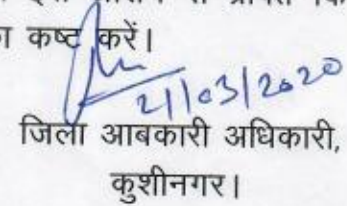 का कष्ट करें।
21/03/2020
जिला आबकारी अधिकारी,
कुशीनगर।